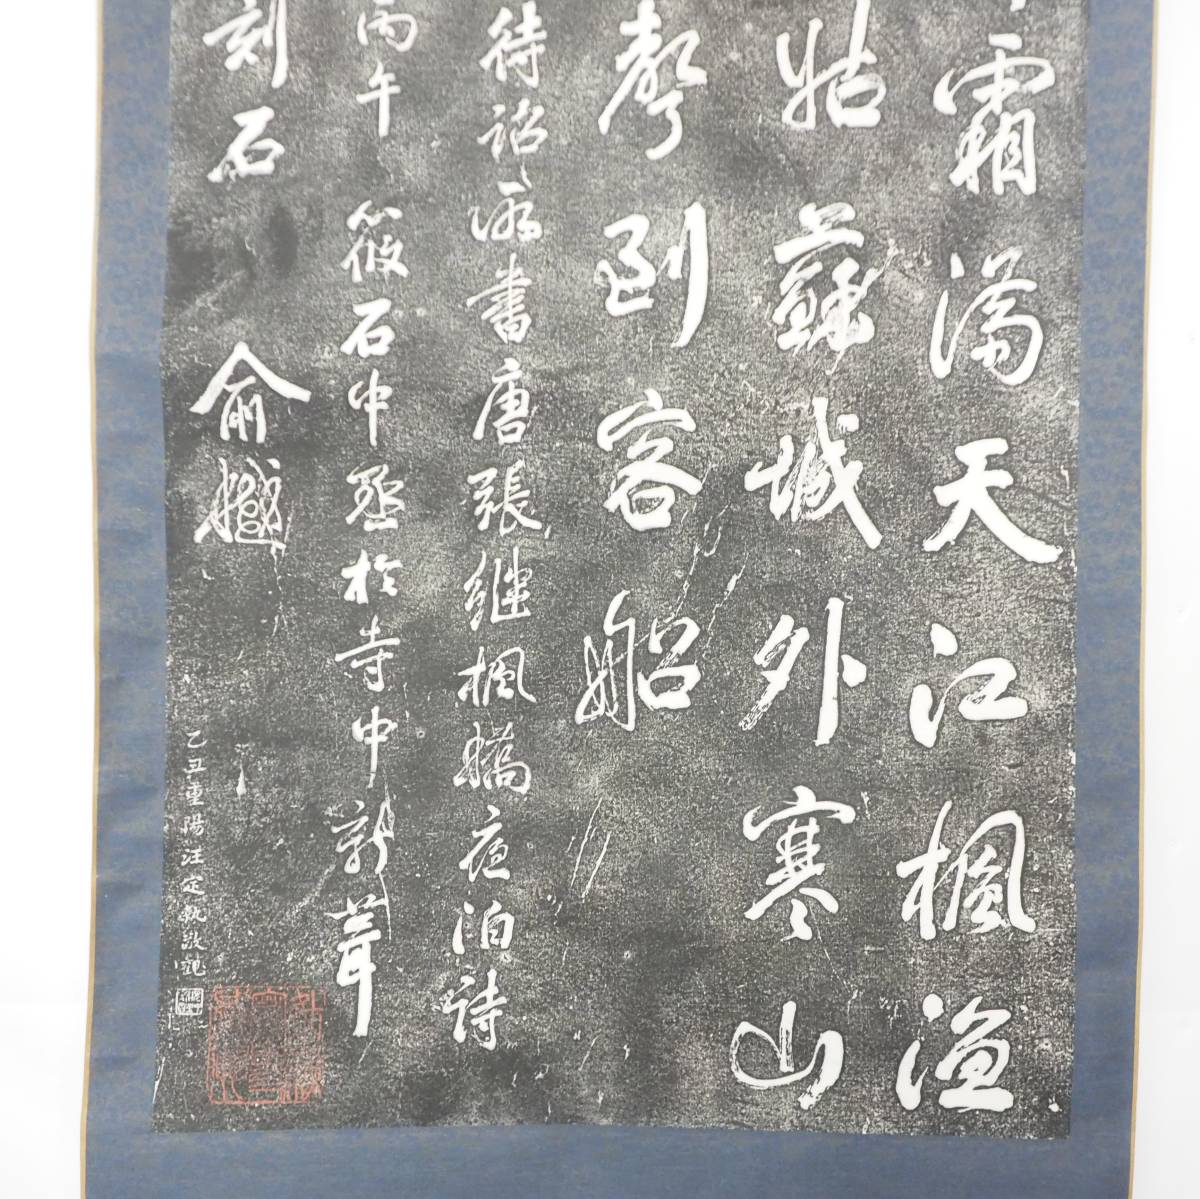 霜滿天江楓渔
姑蘇城外寒山
聲到客船
待詔所書唐張继楓橋夜泊詩
丙午 筱石中丞於寺中新葺
刻石 俞樾
乙丑重陽汪定執敬觀